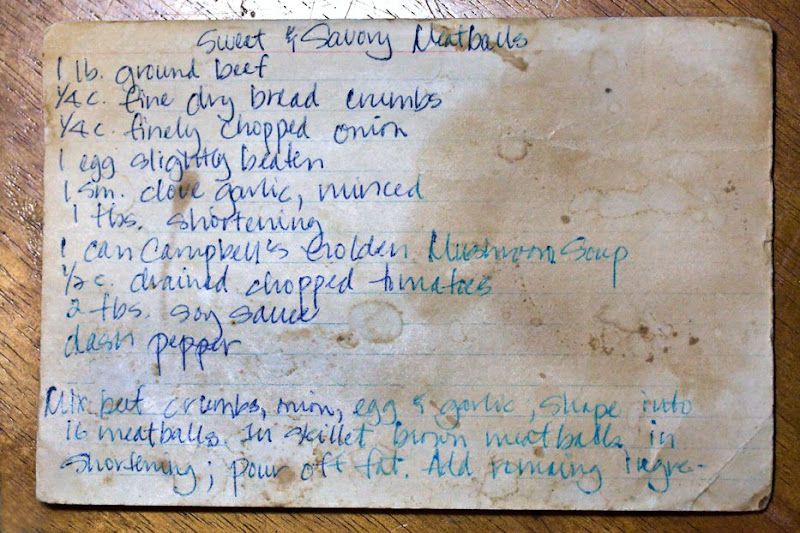 Sweet & Savory Meatballs
1 lb. ground beef
1/4 c. fine dry bread crumbs
1/4 c. finely chopped onion
1 egg slightly beaten
1 sm. clove garlic, minced
1 tbs. shortening
1 can Campbell's Golden Mushroom Soup
1/2 c. drained chopped tomatoes
2 tbs. soy sauce
dash pepper
Mix beef crumbs, onion, egg & garlic, shape into
16 meatballs. In skillet brown meatballs in
shortening; pour off fat. Add remaing ingre-